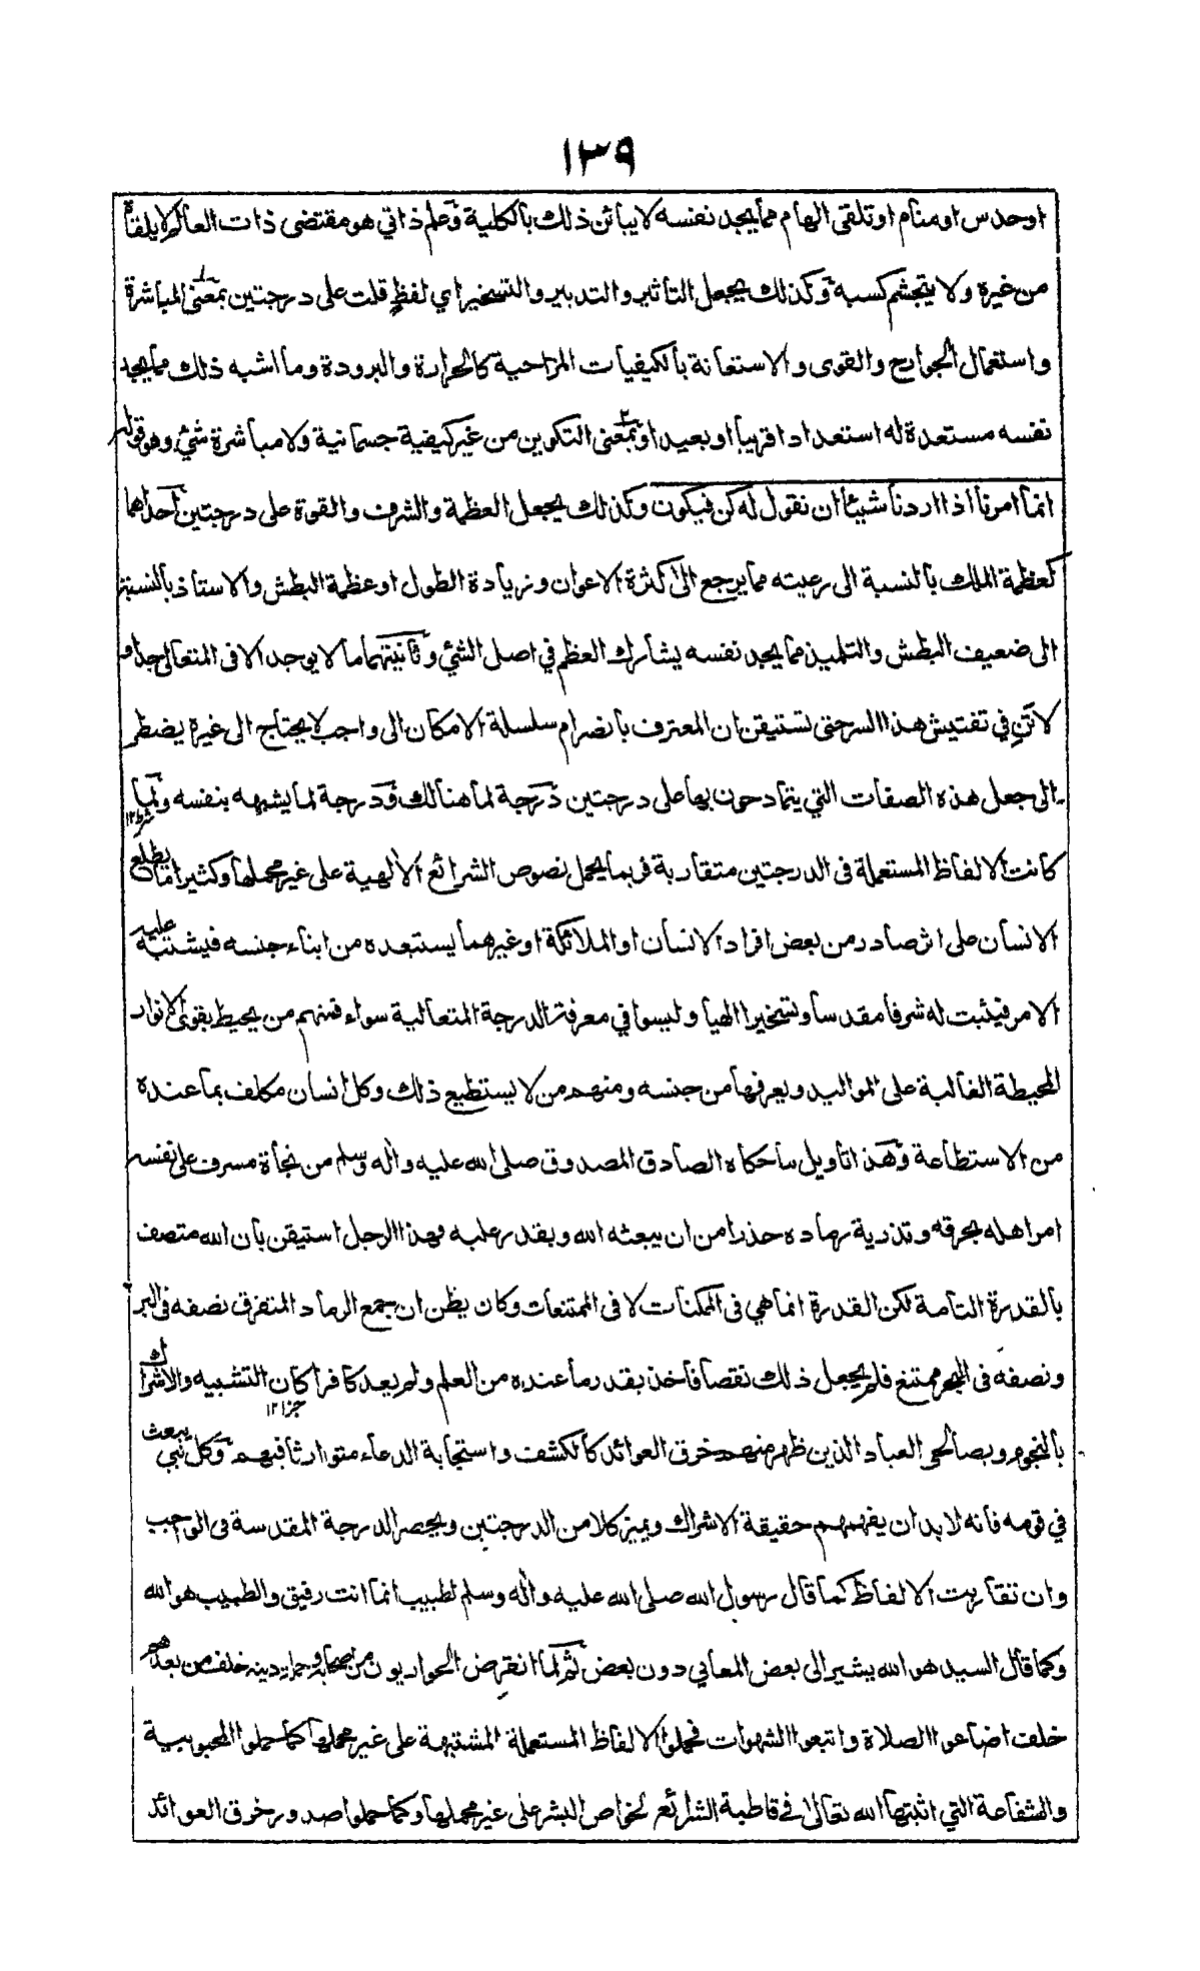 ١٣٩
او حدس او منام او تلقى الهام مما يجد نفسه لا يبائن ذلك بالكلية وعلم ذاتي هو مقتضى ذات العالم لا يلقاه
من غيره ولا يتجشم كسبه وكذلك يجعل التأثير والتدبير والتسخير اي لفظ قلت على درجتين بمعنى المباشرة
واستعمال الجوارح والقوى والاستعانة بالكيفيات المزاجية كالحرارة والبرودة وما اشبه ذلك مما يجد
نفسه مستعدة له استعدادا قريبا او بعيدا و بمعنى التكوين من غير كيفية جسمانية ولا مباشرة شئ وهو قوله
انما امرنا اذا اردنا شيئا ان نقول له كن فيكون وكذلك يجعل العظمة والشرف والقوة على درجتين احداهما
كعظمة الملك بالنسبة الى رعيته مما يرجع الى كثرة الاعوان وزيادة الطول او عظمة البطش والاستاذ بالنسبة
الى ضعيف البطش والتلميذ مما يجد نفسه يشارك العظم في اصل الشئ وثانيتهما ما لا يوجد الا فى المتعالى جدا و
لا تن في تفتيش هذا السر حتى تستيقن ان المعترف بانصرام سلسلة الامكان الى واجب لا يحتاج الى غيره يضطر
الى جعل هذه الصفات التي يتمادحون بها على درجتين درجة لما هنالك ودرجة لما يشبهه بنفسه ولما
شرط ١٢
كانت الالفاظ المستعملة فى الدرجتين متقاربة فربما يحمل نصوص الشرائع الالهية على غير محملها وكثيرا ما يطلع
الانسان على اثر صادر من بعض افراد الانسان او الملائكة او غيرهما يستبعده من ابناء جنسه فيشتبه عليه
الامر فيثبت له شرفا مقدسا وتسخيرا الهيا وليسوا في معرفة الدرجة المتعالية سواء فمنهم من يحيط بقوى الانوار
المحيطة الغالبة على المواليد ويعرفها من جنسه ومنهم من لا يستطيع ذلك وكل انسان مكلف بما عنده
من الاستطاعة وهذا تأويل ما حكاه الصادق المصدوق صلى الله عليه واله وسلم من نجاة مسرف على نفسه
امر اهله بحرقه وتذرية رماده حذرا من ان يبعثه الله ويقدر عليه فهذا الرجل استيقن بان الله متصف
بالقدرة التامة لكن القدرة انما هي فى الممكنات لا فى الممتنعات وكان يظن ان جمع الرماد المتفرق نصفه فى البر
ونصفه فى البحر ممتنع فلم يجعل ذلك نقصا فاخذ بقدر ما عنده من العلم ولم يعد كافرا كان التشبيه والاشراك
جزا ١٢
بالنجوم وبصالحى العباد الذين ظهر منهم خرق العوائد كالكشف واستجابة الدعاء متوارثا فيهم وكل نبي يبعث
في قومه فانه لا بد ان يفهمهم حقيقة الاشراك ويميز كلا من الدرجتين ويحصر الدرجة المقدسة فى الواجب
وان تقاربت الالفاظ كما قال رسول الله صلى الله عليه واله وسلم لطبيب انما انت رفيق والطبيب هو الله
وكما قال السيد هو الله يشير الى بعض المعاني دون بعض ثم لما انقرض الحواريون من اصحابه وحملة دينه خلف من بعدهم
خلف اضاعوا الصلاة واتبعوا الشهوات فحملوا الالفاظ المستعملة المشتبهة على غير محملها كما حملوا المحبوبية
والشفاعة التي اثبتها الله تعالى في قاطبة الشرائع لخواص البشر على غير محملها وكما حملوا صدور خرق العوائد